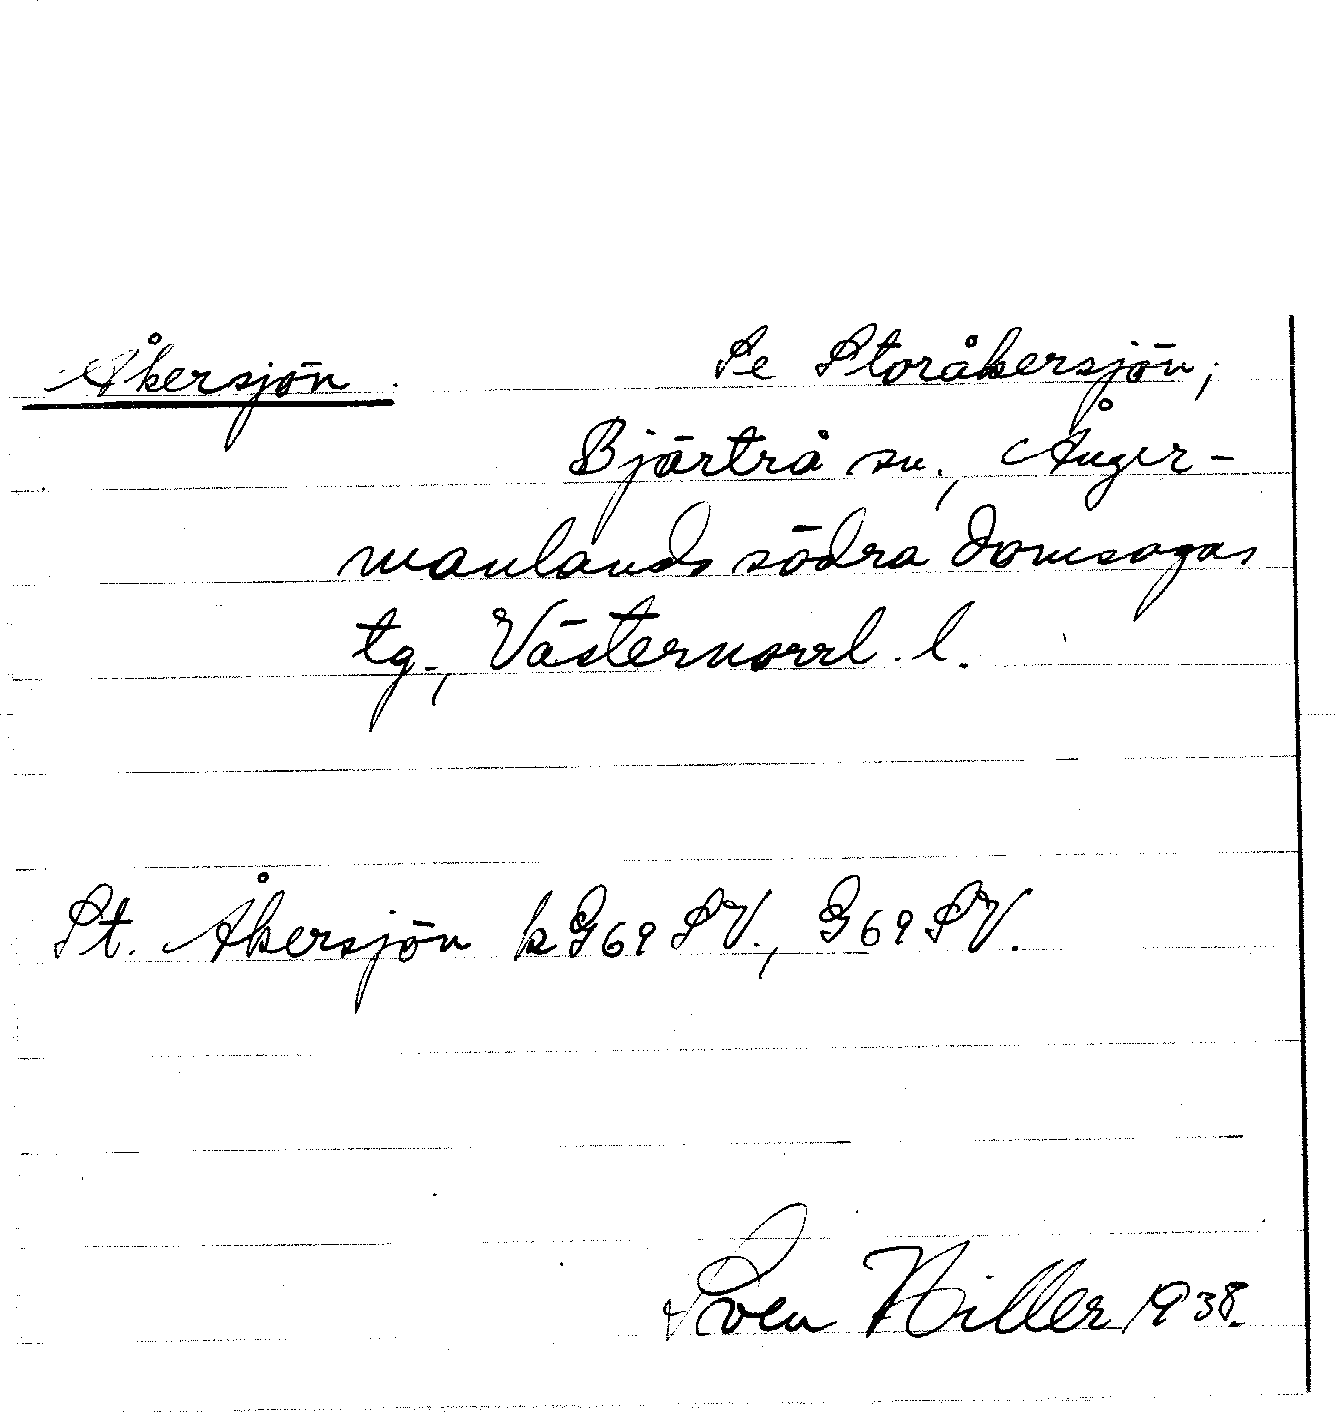 Åkersjön. Se Storåkersjön;
Bjärtrå sn., Ånger-
manlands södra domsagas
tg., Västernorrl. l.
St. Åkersjön k G69 SV., G69 SV.
Sven Hiller 1938.